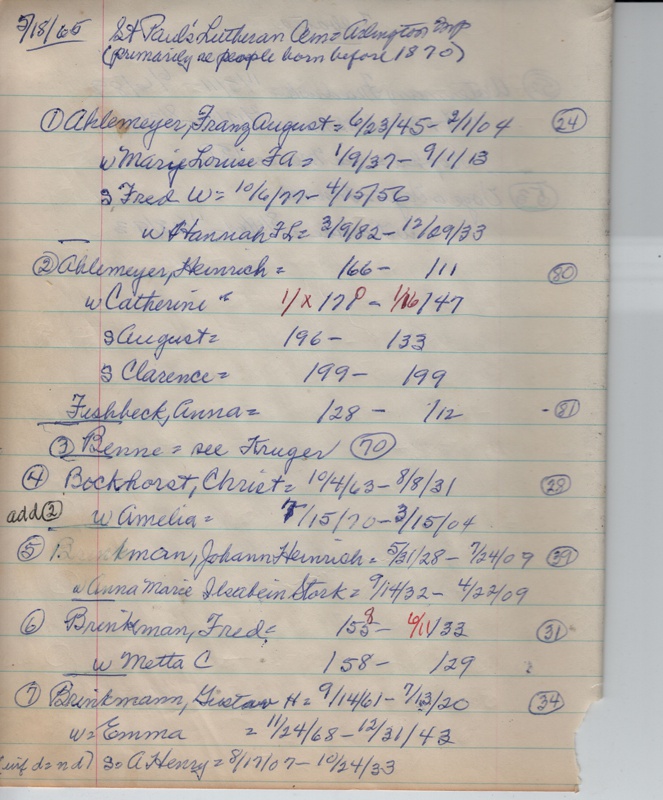 5/18/65 St Paul's Lutheran Cem = Adington Twp
(primarily re people born before 1870)
① Ahlemeyer, Franz August = 6/23/45 - 2/1/04 ㉔
w Marie Louise FA = 1/9/37 - 9/1/13
S Fred W = 10/6/77 - 4/15/56
w Hannah FL = 3/9/82 - 12/29/33
② Ahlemeyer, Heinrich = /66 - /11 (80)
w Catherine " 1/x/78 - 1/16/47
S August = /96 - /33
S Clarence = /99 - /99
Fishbeck, Anna = /28 - /12 - (81)
③ Benne = see Kruger (70)
④ Bockhorst, Christ = 10/4/63 - 8/8/31 (28)
add ② w Amelia = 7/15/70 - 3/15/04
⑤ Brinkman, Johann Heinrich = 5/21/28 - 7/24/09 (39)
w Anna Marie Ilsabein Stork = 9/14/32 - 4/22/09
⑥ Brinkman, Fred = /55 8 - 6/11/33 (31)
w Metta C /58 - /29
⑦ Brinkmann, Gustav H = 9/14/61 - 7/13/20 (34)
w = Emma = 11/24/68 - 12/31/43
(wif d = nd) S = A Henry = 8/17/07 - 10/24/33